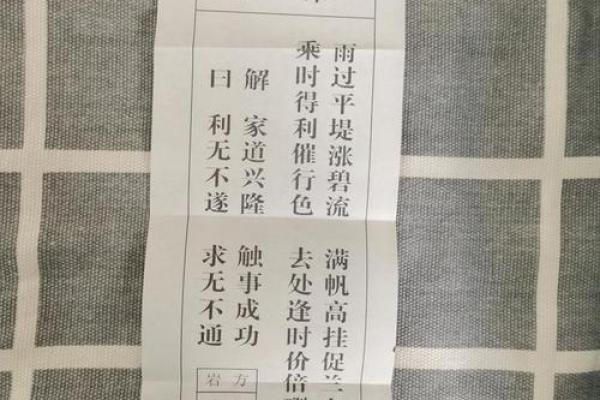 雨过平堤涨碧流 满帆高挂促兰
乘时得利催行色 去处逢时价倍
解 家道兴隆 触事成功
曰 利无不遂 求无不通
方岩